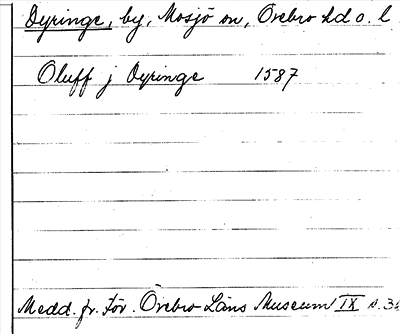 Dyringe, by, Mosjö sn, Örebro hd o. l
Oluff j Dyringe 1587
Medd. fr. För. Örebro Läns Museum IX s. 3